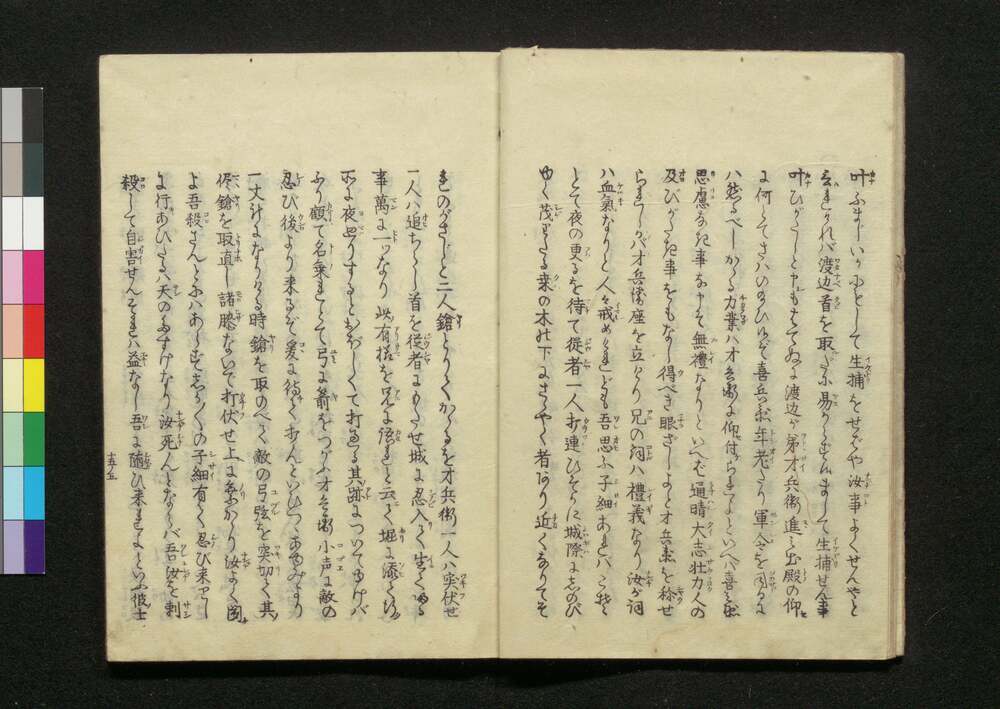 叶ふまじいかにもして生捕をせばや汝事よくせんやと
云をれバ渡辺首を取だに易からずまして生捕せん事
叶ひがたしと申もはてぬに渡辺が弟才兵衛進ミ出殿の仰
に何とてさハのたひ候ぞ喜兵衛年老たり軍令を
ハ然るべしかゝる力業ハ才兵衛に仰付られよといへバ喜兵衛
思慮なき事な申そ無禮なりといへば遖晴大志壮力人の
及びがたき事をもなし得べき眼ざしよと才兵衛を称せ
られしかバ才兵衛座を立けり兄の詞ハ禮義なり汝が詞
ハ血氣なりと人々戒めけれども吾思ふ子細あれバこそ
とて夜の更るを待て従者一人打連ひそかに城際にしのび
ゆく茂りたる桑の木の下にさゝやく者あり近くなりてそ
れのがさじと二人鎗とりてかゝるを才兵衛一人ハ突伏せ
一人ハ追ちらし首を従者にもたせ城に忍入て生て帰る
事萬に一ツなり此有様を兄に伝えよと云て堀に添て行
所に夜廻りするとおぼしくて打通る其跡について行けバ
ふり顧て名乗れとて弓に箭をつがふ才兵衛小声に敵の
忍び後より来るぞ爰に待て打んといひつゝあゆみより
一丈計になりける時鎗を取のべて敵の弓弦を突切て其
侭鎗を取直し諸膝ないで打伏せ上に乗かゝり汝よく聞
よ吾殺さんとにハあらずしか〴〵の子細有て忍び来りし
に行あひたるハ天のたすけなり汝死んとならバ吾汝を刺
殺して自害せんそれハ益なし吾に随ひ来れよといふ彼士